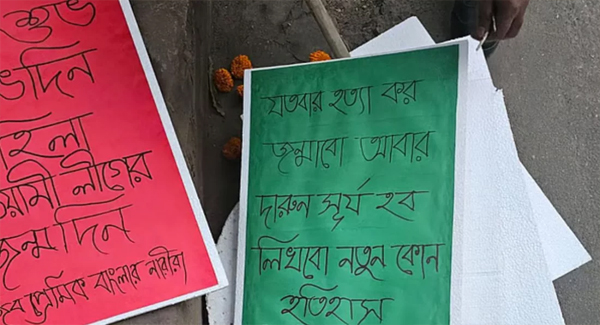 শুভ
দিন
হিলা
য়ামী লীগের
জন্মদিন
প্রেমিক বাংলার নারীরা
যতবার হত্যা কর
জন্মাবো আবার
দারুন সূর্য হব
লিখবো নতুন কোন
ইতিহাস